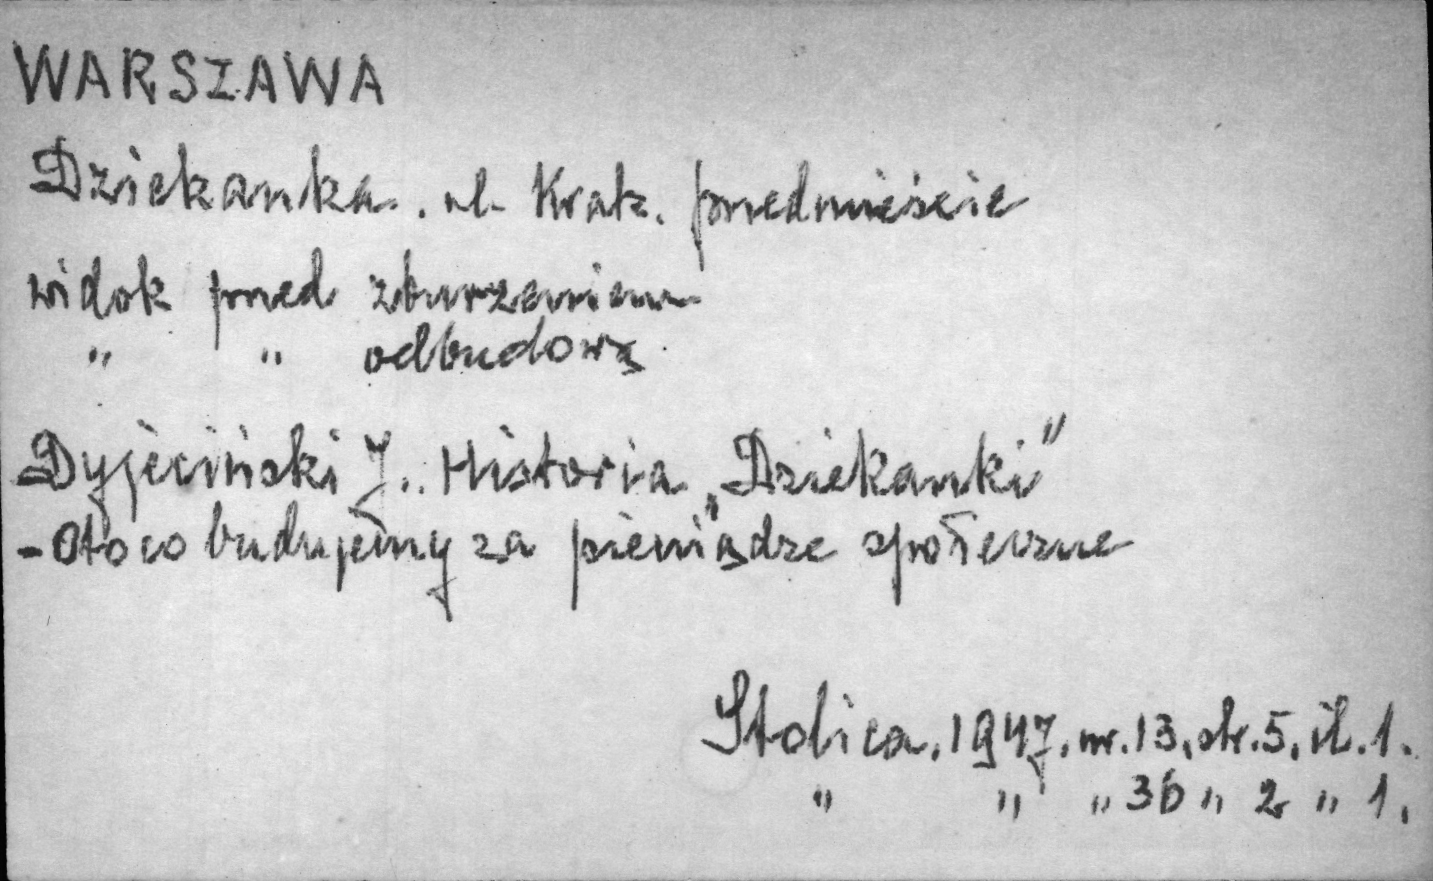 WARSZAWA
Dziekanka. ul. Krak. przedmieście
widok przed zburzeniem
" " odbudową
Dyjeciński J.. Historia „Dziekanki"
- Oto co budujemy za pieniądze społeczne
Stolica. 1947. nr. 13. str. 5. il. 1.
" " " 36 " 2 " 1.